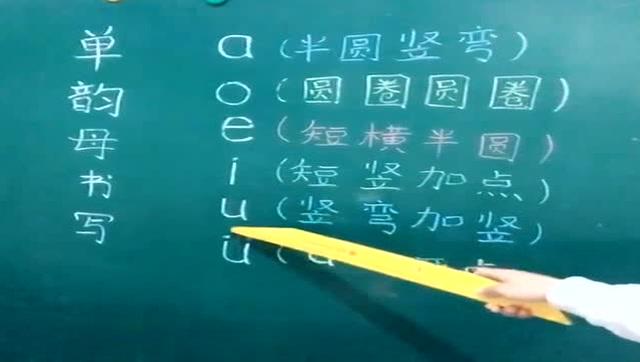 单韵母书写
a (半圆竖弯)
o (圆圈圆圈)
e (短横半圆)
i (短竖加点)
u (竖弯加竖)
ü (u